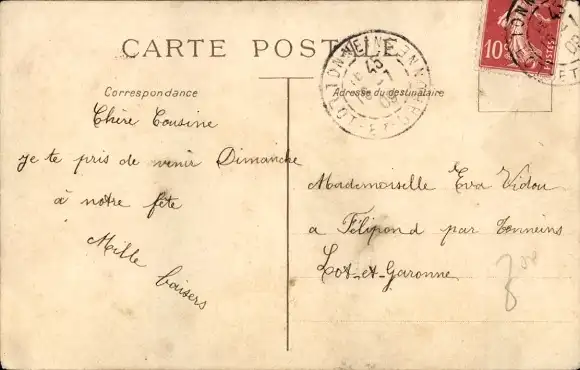 CARTE POSTALE
Correspondance
Adresse du destinataire
Chère Cousine
je te pris de venir Dimanche
à nôtre fête
Mille
baisers
Mademoiselle Eva Vidou
a Félipond par Tonneins
Lot-et-Garonne
TONNEINS
LOT-ET-GARONNE
10c